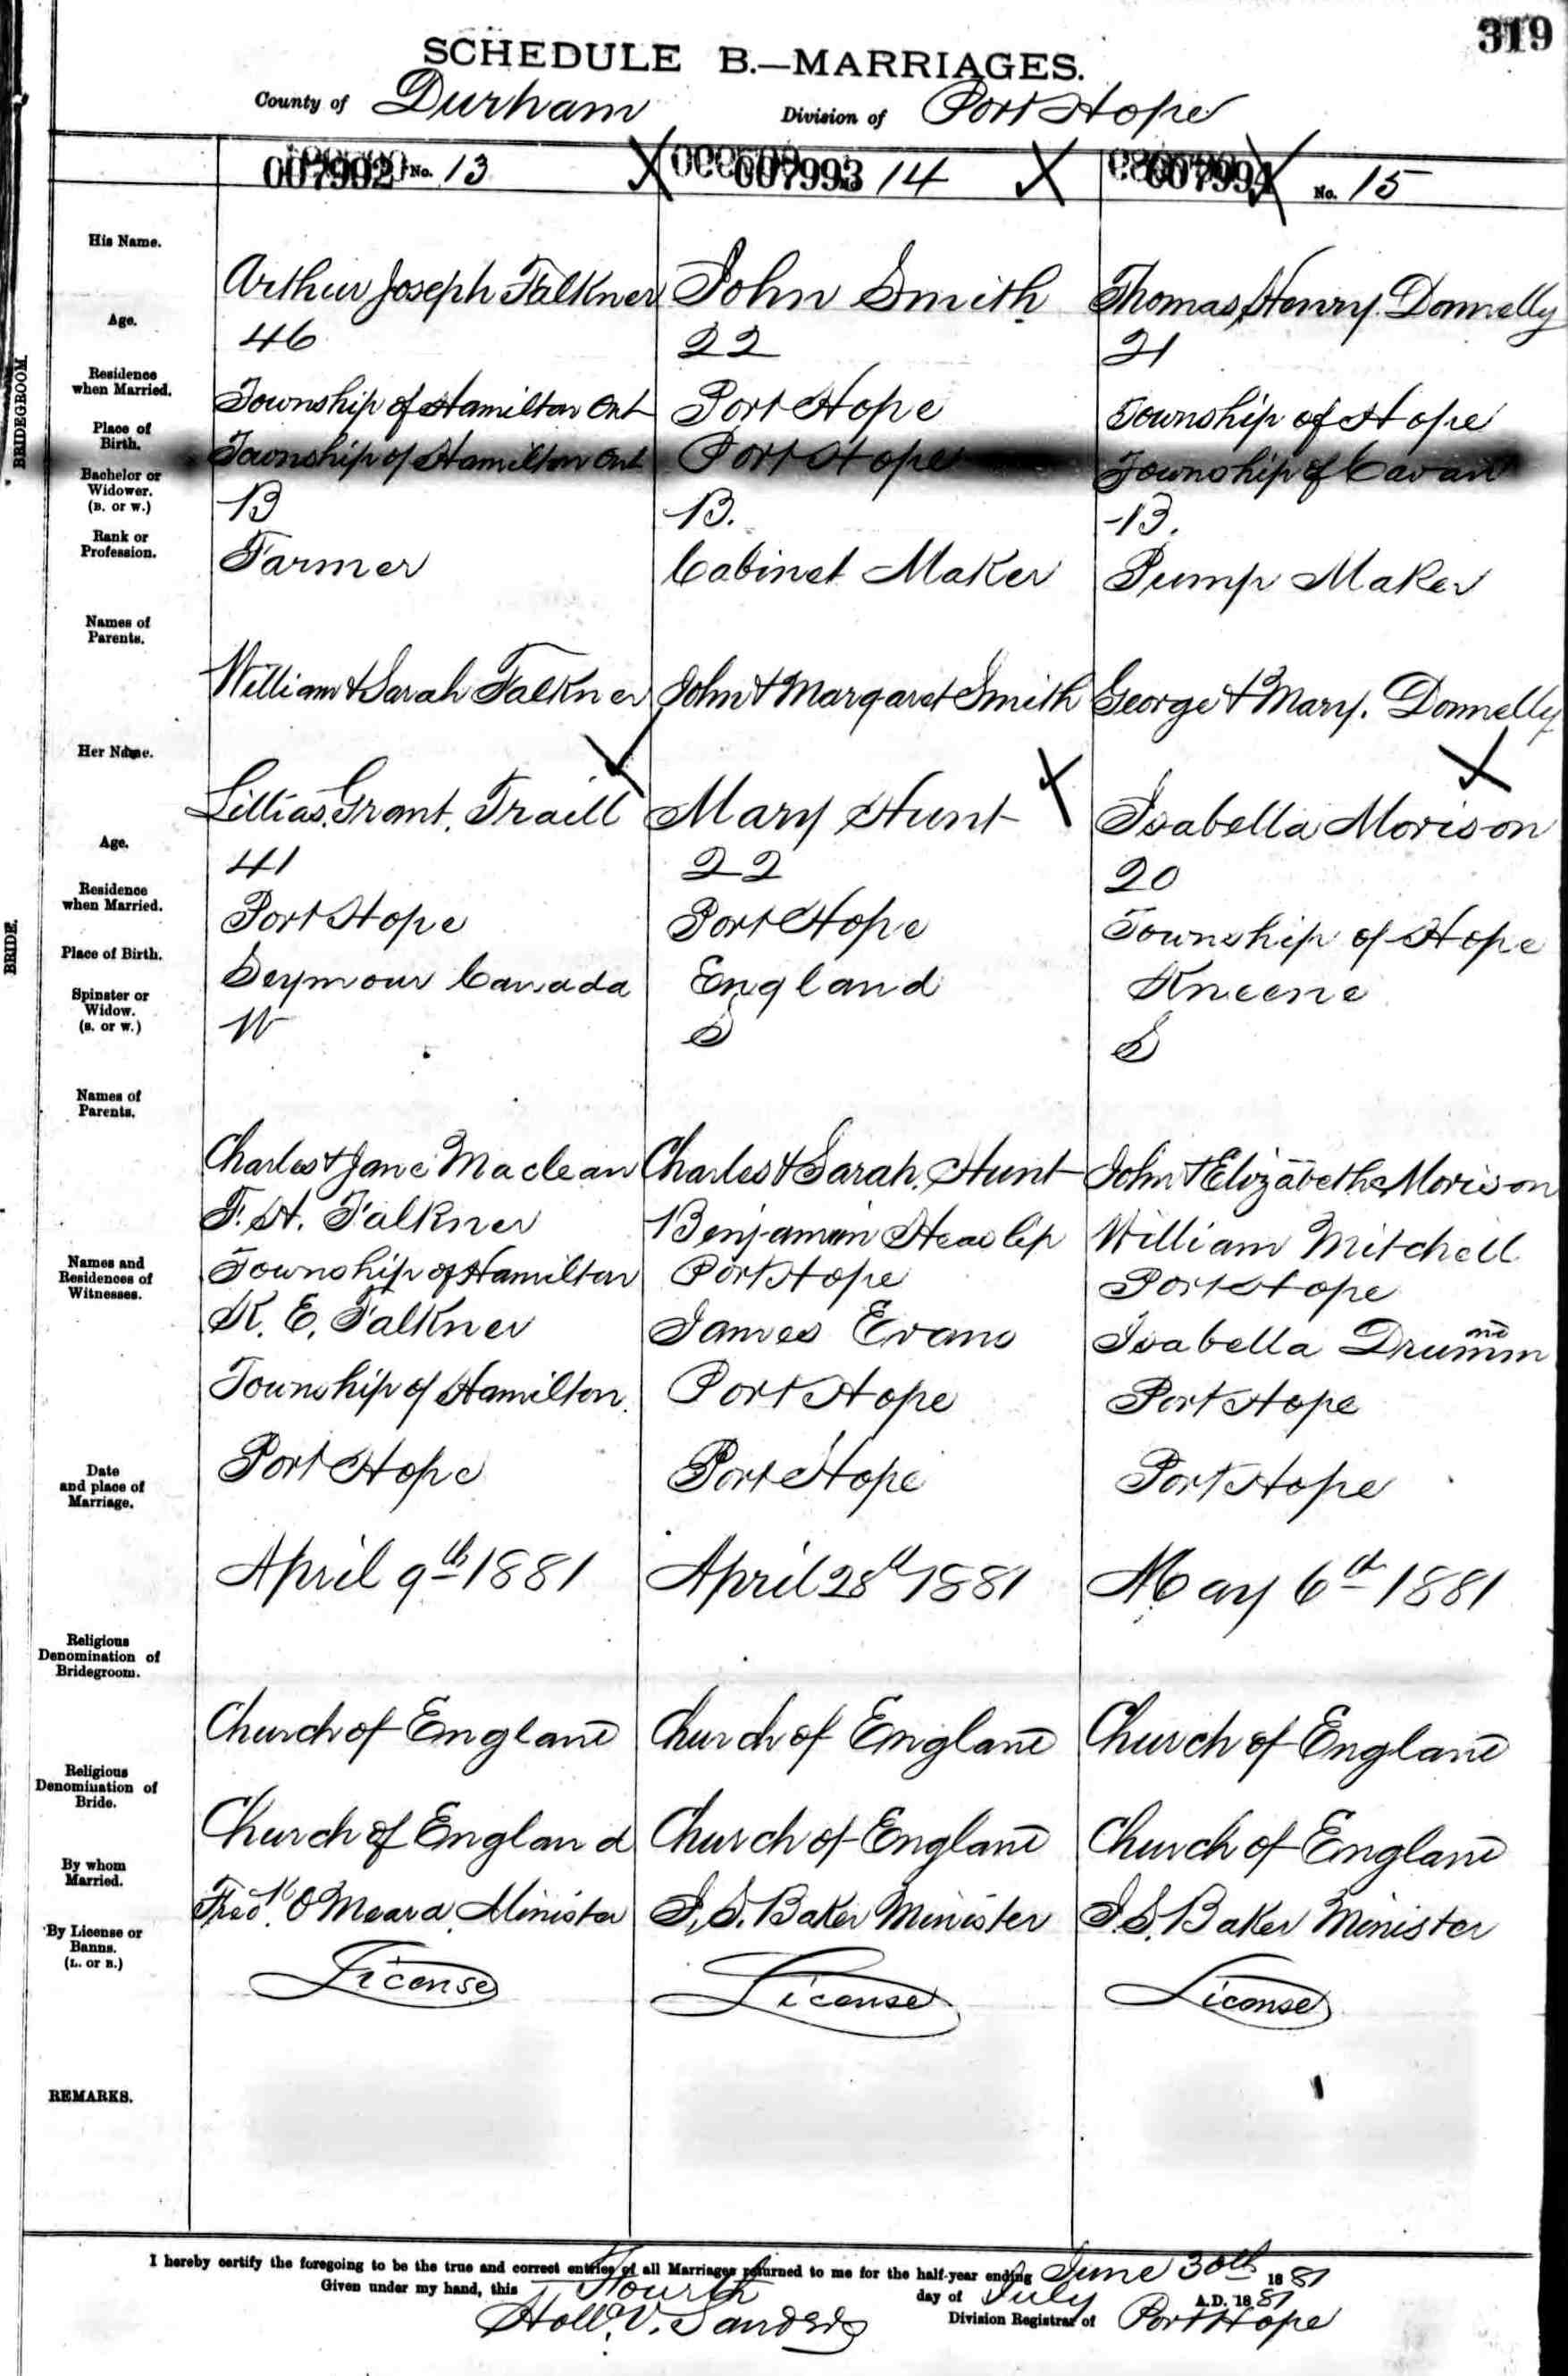 319
SCHEDULE B.—MARRIAGES.
County of Durham Division of Port Hope
007992 No. 13 007993 14 007994 No. 15
His Name.
Arthur Joseph Falkner John Smith Thomas Henry Donnelly
Age.
46 22 21
Residence when Married.
Township of Hamilton Ont Port Hope Township of Hope
Place of Birth.
Township of Hamilton Ont Port Hope Township of Cavan
Bachelor or Widower. (B. or W.)
B B. B.
Rank or Profession.
Farmer Cabinet Maker Pump Maker
Names of Parents.
William & Sarah Falkner John & Margaret Smith George & Mary. Donnelly
BRIDEGROOM.
Her Name.
Lillias Grant Traill Mary Hunt Isabella Morison
Age.
41 22 20
Residence when Married.
Port Hope Port Hope Township of Hope
Place of Birth.
Seymour Canada England Kneene
Spinster or Widow. (S. or W.)
W S S
Names of Parents.
Charles & Jane Maclean Charles & Sarah. Hunt John & Elizabeth Morison
BRIDE.
Names and Residences of Witnesses.
F. H. Falkner Benjamin Heaslip William Mitchell
Township of Hamilton Port Hope Port Hope
K. E. Falkner James Evans Isabella Drumm
Township of Hamilton. Port Hope Port Hope
Date and place of Marriage.
Port Hope Port Hope Port Hope
April 9th 1881 April 28th 1881 May 6th 1881
Religious Denomination of Bridegroom.
Church of England Church of England Church of England
Religious Denomination of Bride.
Church of England Church of England Church of England
By whom Married.
O'Meara Minister J. S. Baker Minister J. S. Baker Minister
By License or Banns. (L. or B.)
License License License
REMARKS.
I hereby certify the foregoing to be the true and correct entries of all Marriages returned to me for the half-year ending June 30th 1881
Given under my hand, this Fourth day of July A.D. 1881
Sanders Division Registrar of Port Hope